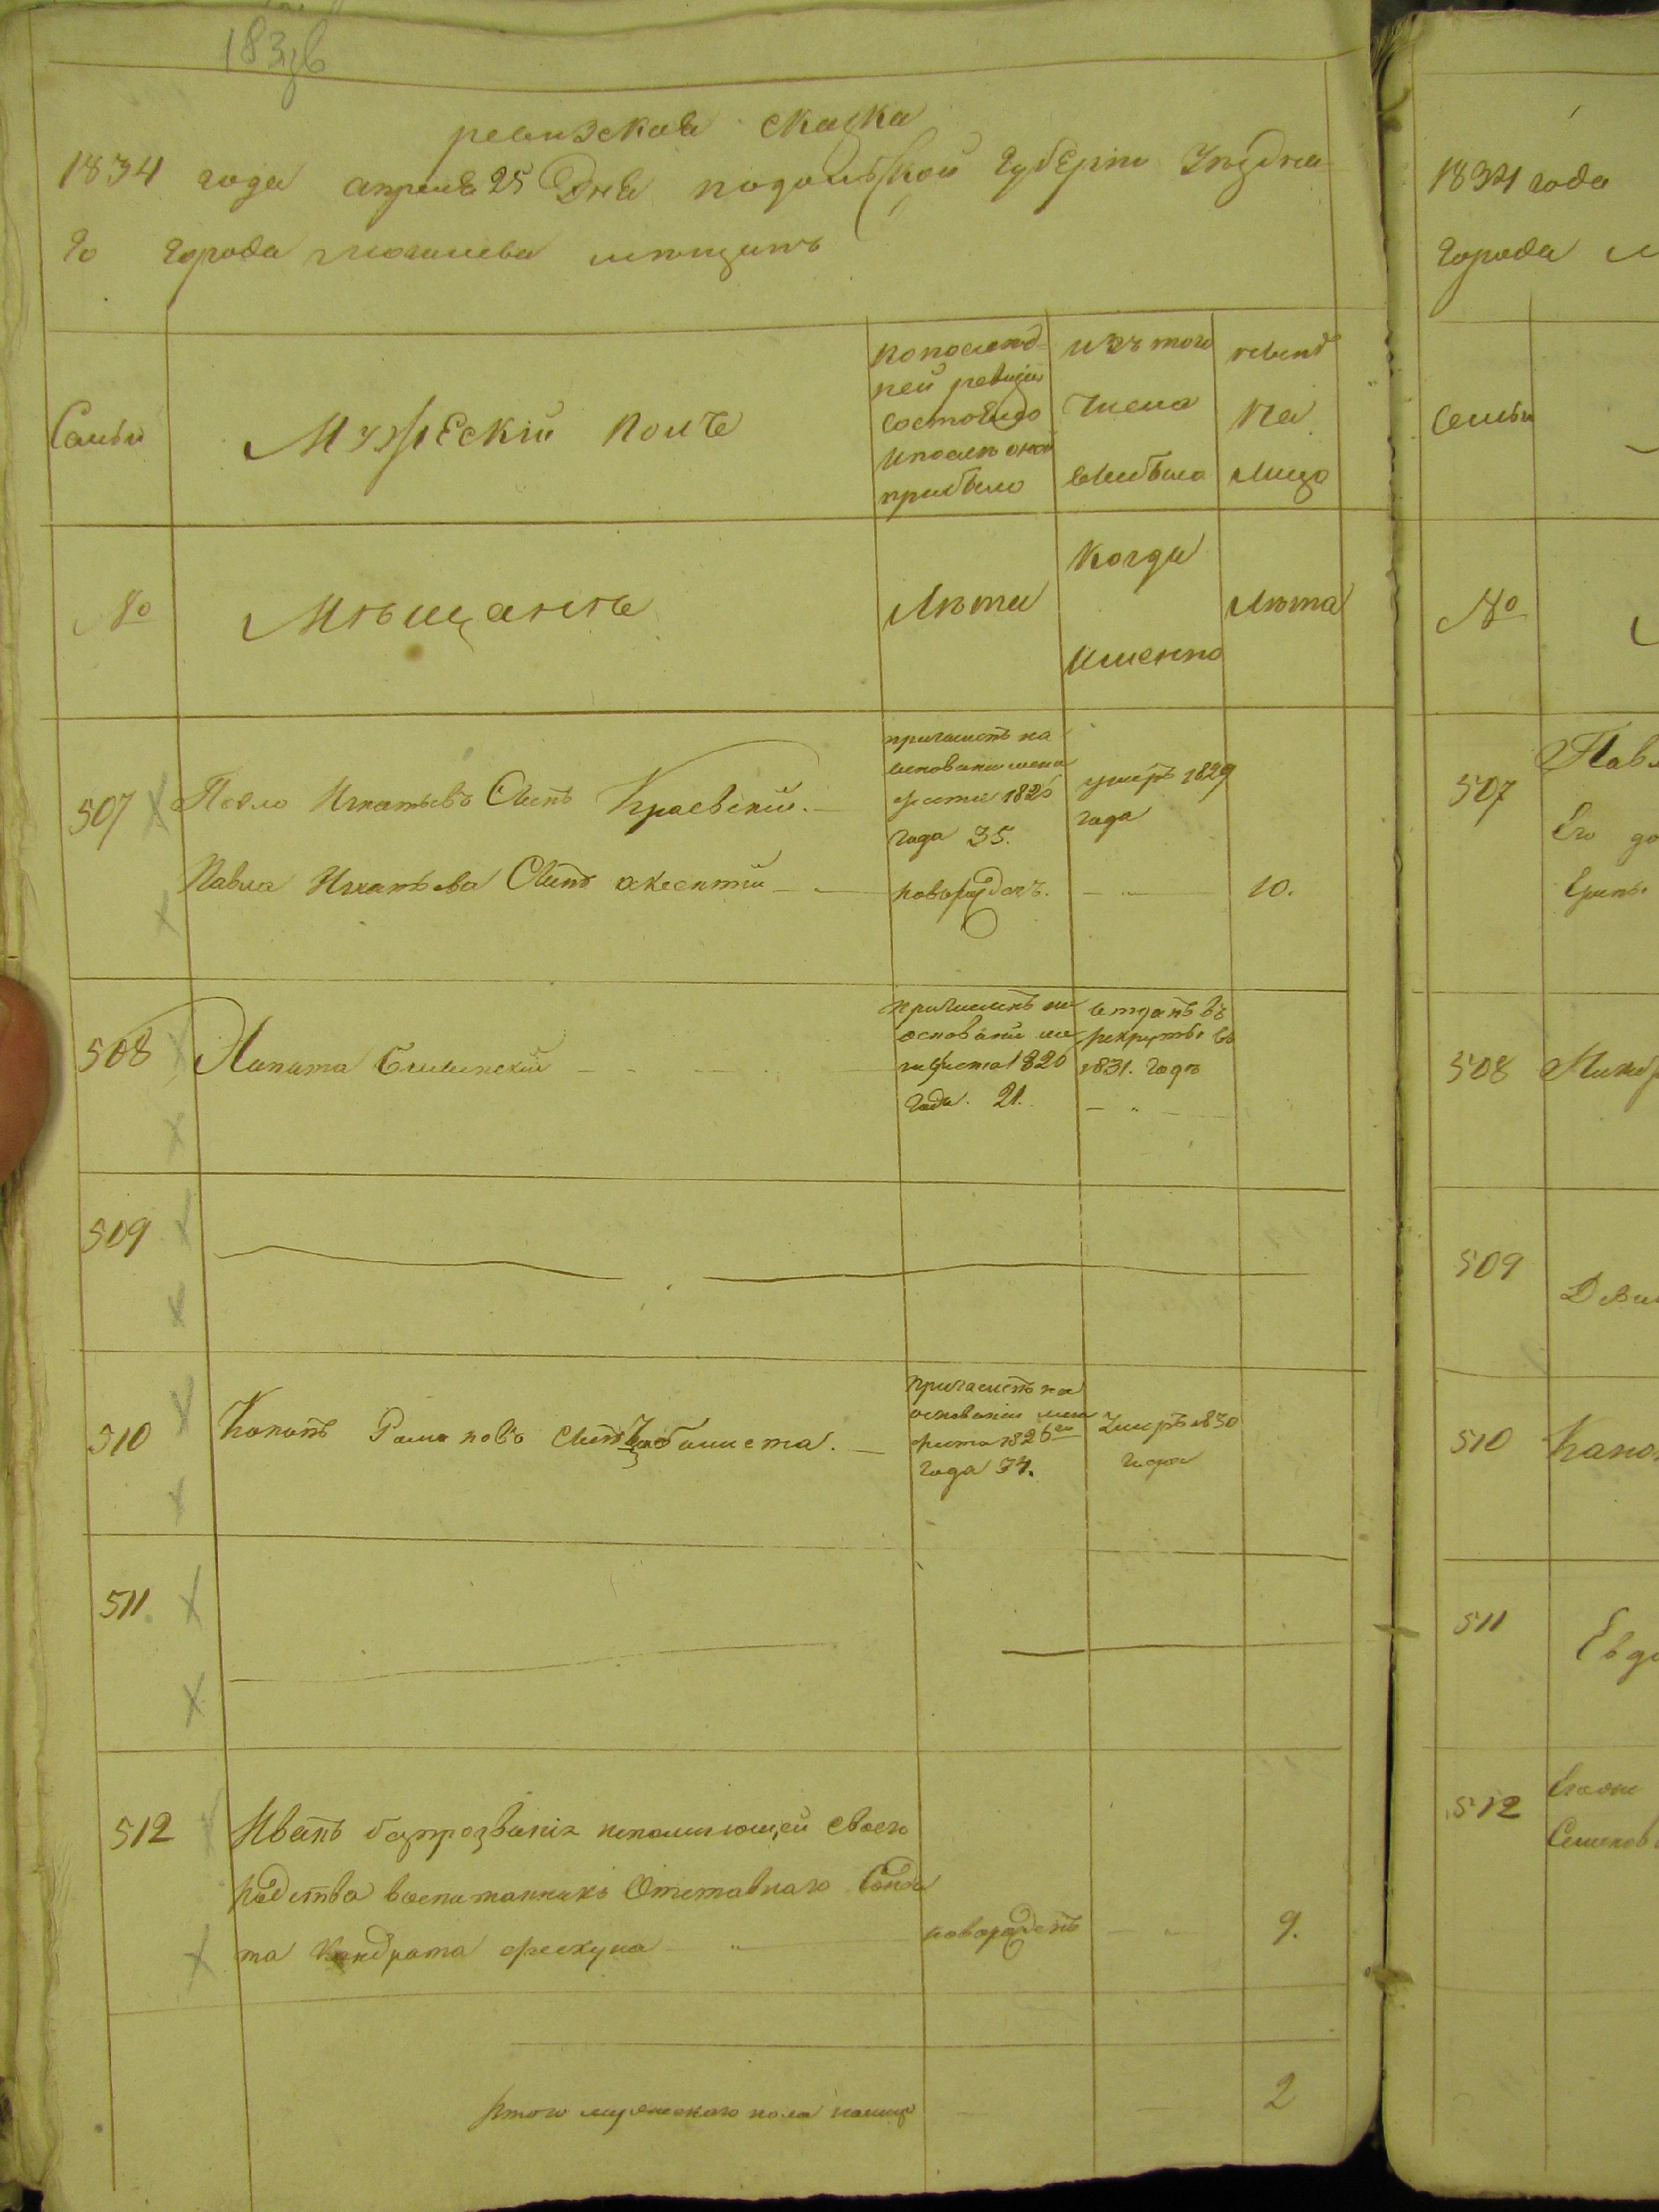 183
ревизская сказка
1834 года апреля 25 Дня подольской Губерни Уездна
го города могилева мещанъ
Семьи
Мужескій полъ
попослед
ней ревизіи
состояло
и после оной
прибыло
изъ того
Числа
выбыло
ныне
на
лицо
№
Мещане
Лета
Когда
именно
Лета
507
Павло Игнатьевъ Сынъ Краевскій.
причисленъ на
основани мани
феста 1826
года 35.
умеръ 1829
года
Павла Игнатьева Сынъ
новорожденъ.
10.
508
причисленъ на
основани ма
нифеста 1826
года. 21.
отданъ въ
рекруты въ
1831. годе
509
510
Кононъ Романовъ Сынъ
причисленъ на
основаніи мани
феста 1826го
года 34.
Умеръ 1830
года
511
512
Иванъ безпрозванія непомнющей своего
родства воспитанникъ Отставнаго Солда
та Кондрата
новорожденъ
9.
Итого мужескаго пола налицо
2
1834 года
города
Семьи
№
507
Его
508
509
510
511
512